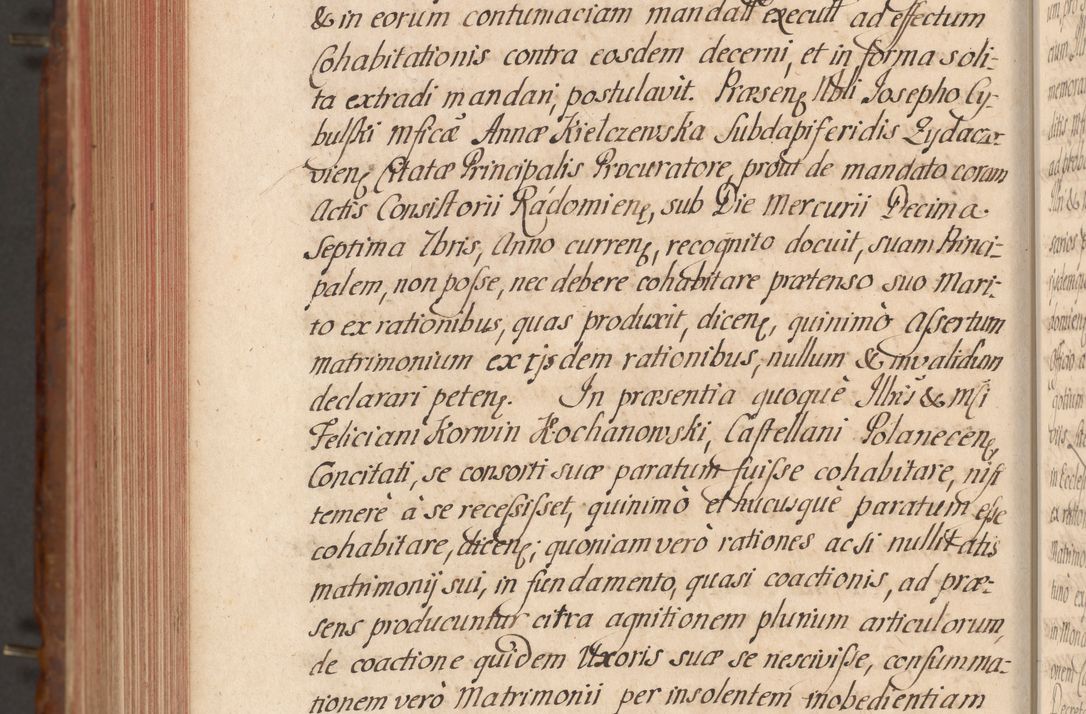 & in eorum contumaciam mandatt executt ad effectum
Cohabitationis contra eosdem decerni, et in forma soli-
ta extradi mandari, postulavit. Præsenȩ Nbli Josepho Cy-
bulski Mficæ Annæ Kiełczewska Subdapiferidis Zydacz-
vienȩ Citatæ Principalis Procuratore, prout de mandato coram
Actis Consistorii Rádomienȩ, sub Die Mercurii Decima
Septima 7bris, Anno currenȩ, recognito docuit, suam Princi-
palem, non posse, nec debere cohabitare prætenso suo Mari-
to ex rationibus, quas produxit, dicenȩ, quinimò Assertum
matrimonium ex ijsdem rationibus, nullum & invalidum
declarari petenȩ. In præsentia quoquè Illris & Mfi
Feliciani Korwin Kochanowski, Castellani Polanecenȩ
Concitati, se consorti suæ paratum fuisse cohabitare, nisi
temerè à se recessisset, quinimò et hucusquè paratum esse
cohabitare, dicenȩ; quoniam verò rationes ac si nullitatis
matrimonij sui, in fundamento, quasi coactionis, ad præ-
sens producuntur citra agnitionem plurium articulorum,
de coactione quidem Uxoris suæ se nescivisse, consumma-
tionem verò Matrimonii per insolentem inobedientiam